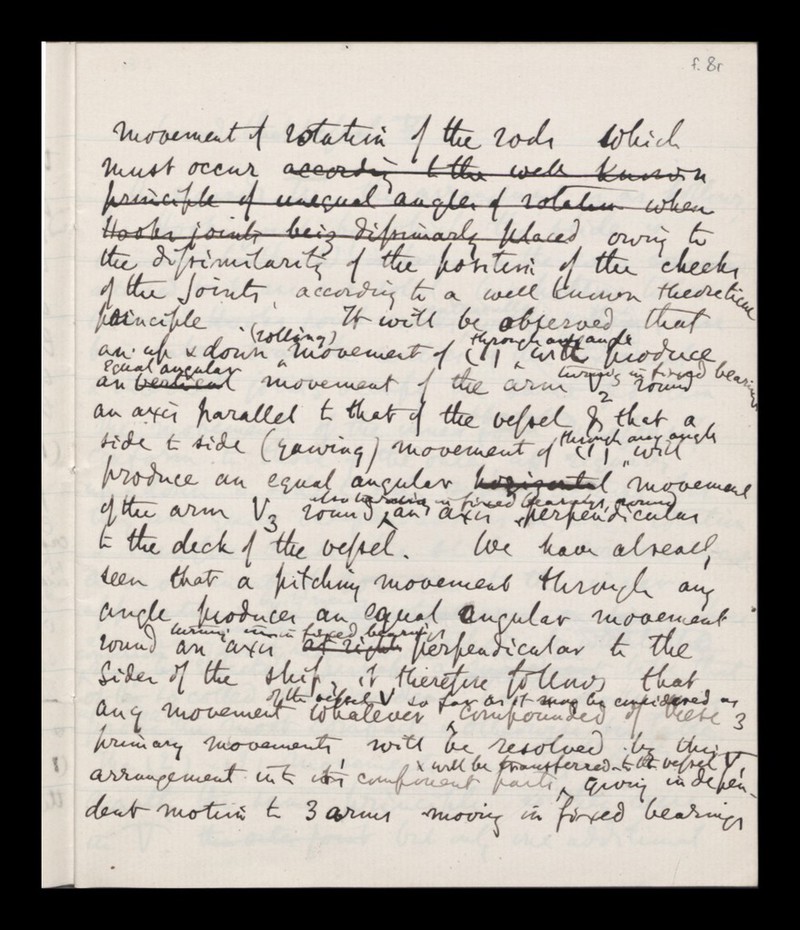 f. 8r
movement of rotation of the rods which
must occur according to the well known
principle of unequal angles of rotation when
Hooks joints being dissimarly placed owing to
the dissimilarity of the position of the cheeks
of the joints, according to a well known theoretical
principle. It will be observed that
(rolling) through any angle
an up & down movement of (1) will produce
equal angular turning in fixed bearings
an vertical movement of the arm V2 round
an axis parallel to that of the vessel & that a
side to side (yawing) movement of (1) will
through any angle
produce an equal angular horizontal movement
also turning in fixed bearings, round
of the arm V3 round an axis perpendicular
to the deck of the vessel. We have already
seen that a pitching movement through any
angle produces an equal angular movement
turning in fixed bearings
round an axis at right perpendicular to the
sides of the ship, it therefore follows that
of the vessel V so far as it may be considered as
any movement whatever compounded of these 3
primary movements will be resolved by this
& will be transferred to the vessel V,
arrangement into its component parts, giving indepen-
dent motion to 3 arms moving in fixed bearings